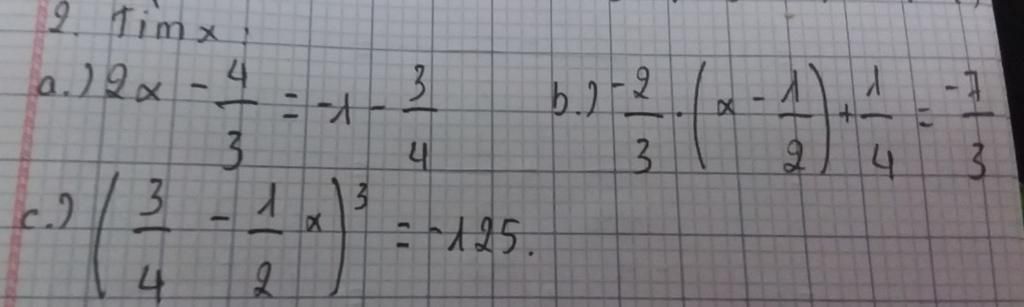 2. Tìm x:
a.) 2x - 4/3 = -1 - 3/4 b.) -2/3 . (x - 1/2) + 1/4 = -7/3
c.) (3/4 - 1/2 x)³ = -125.